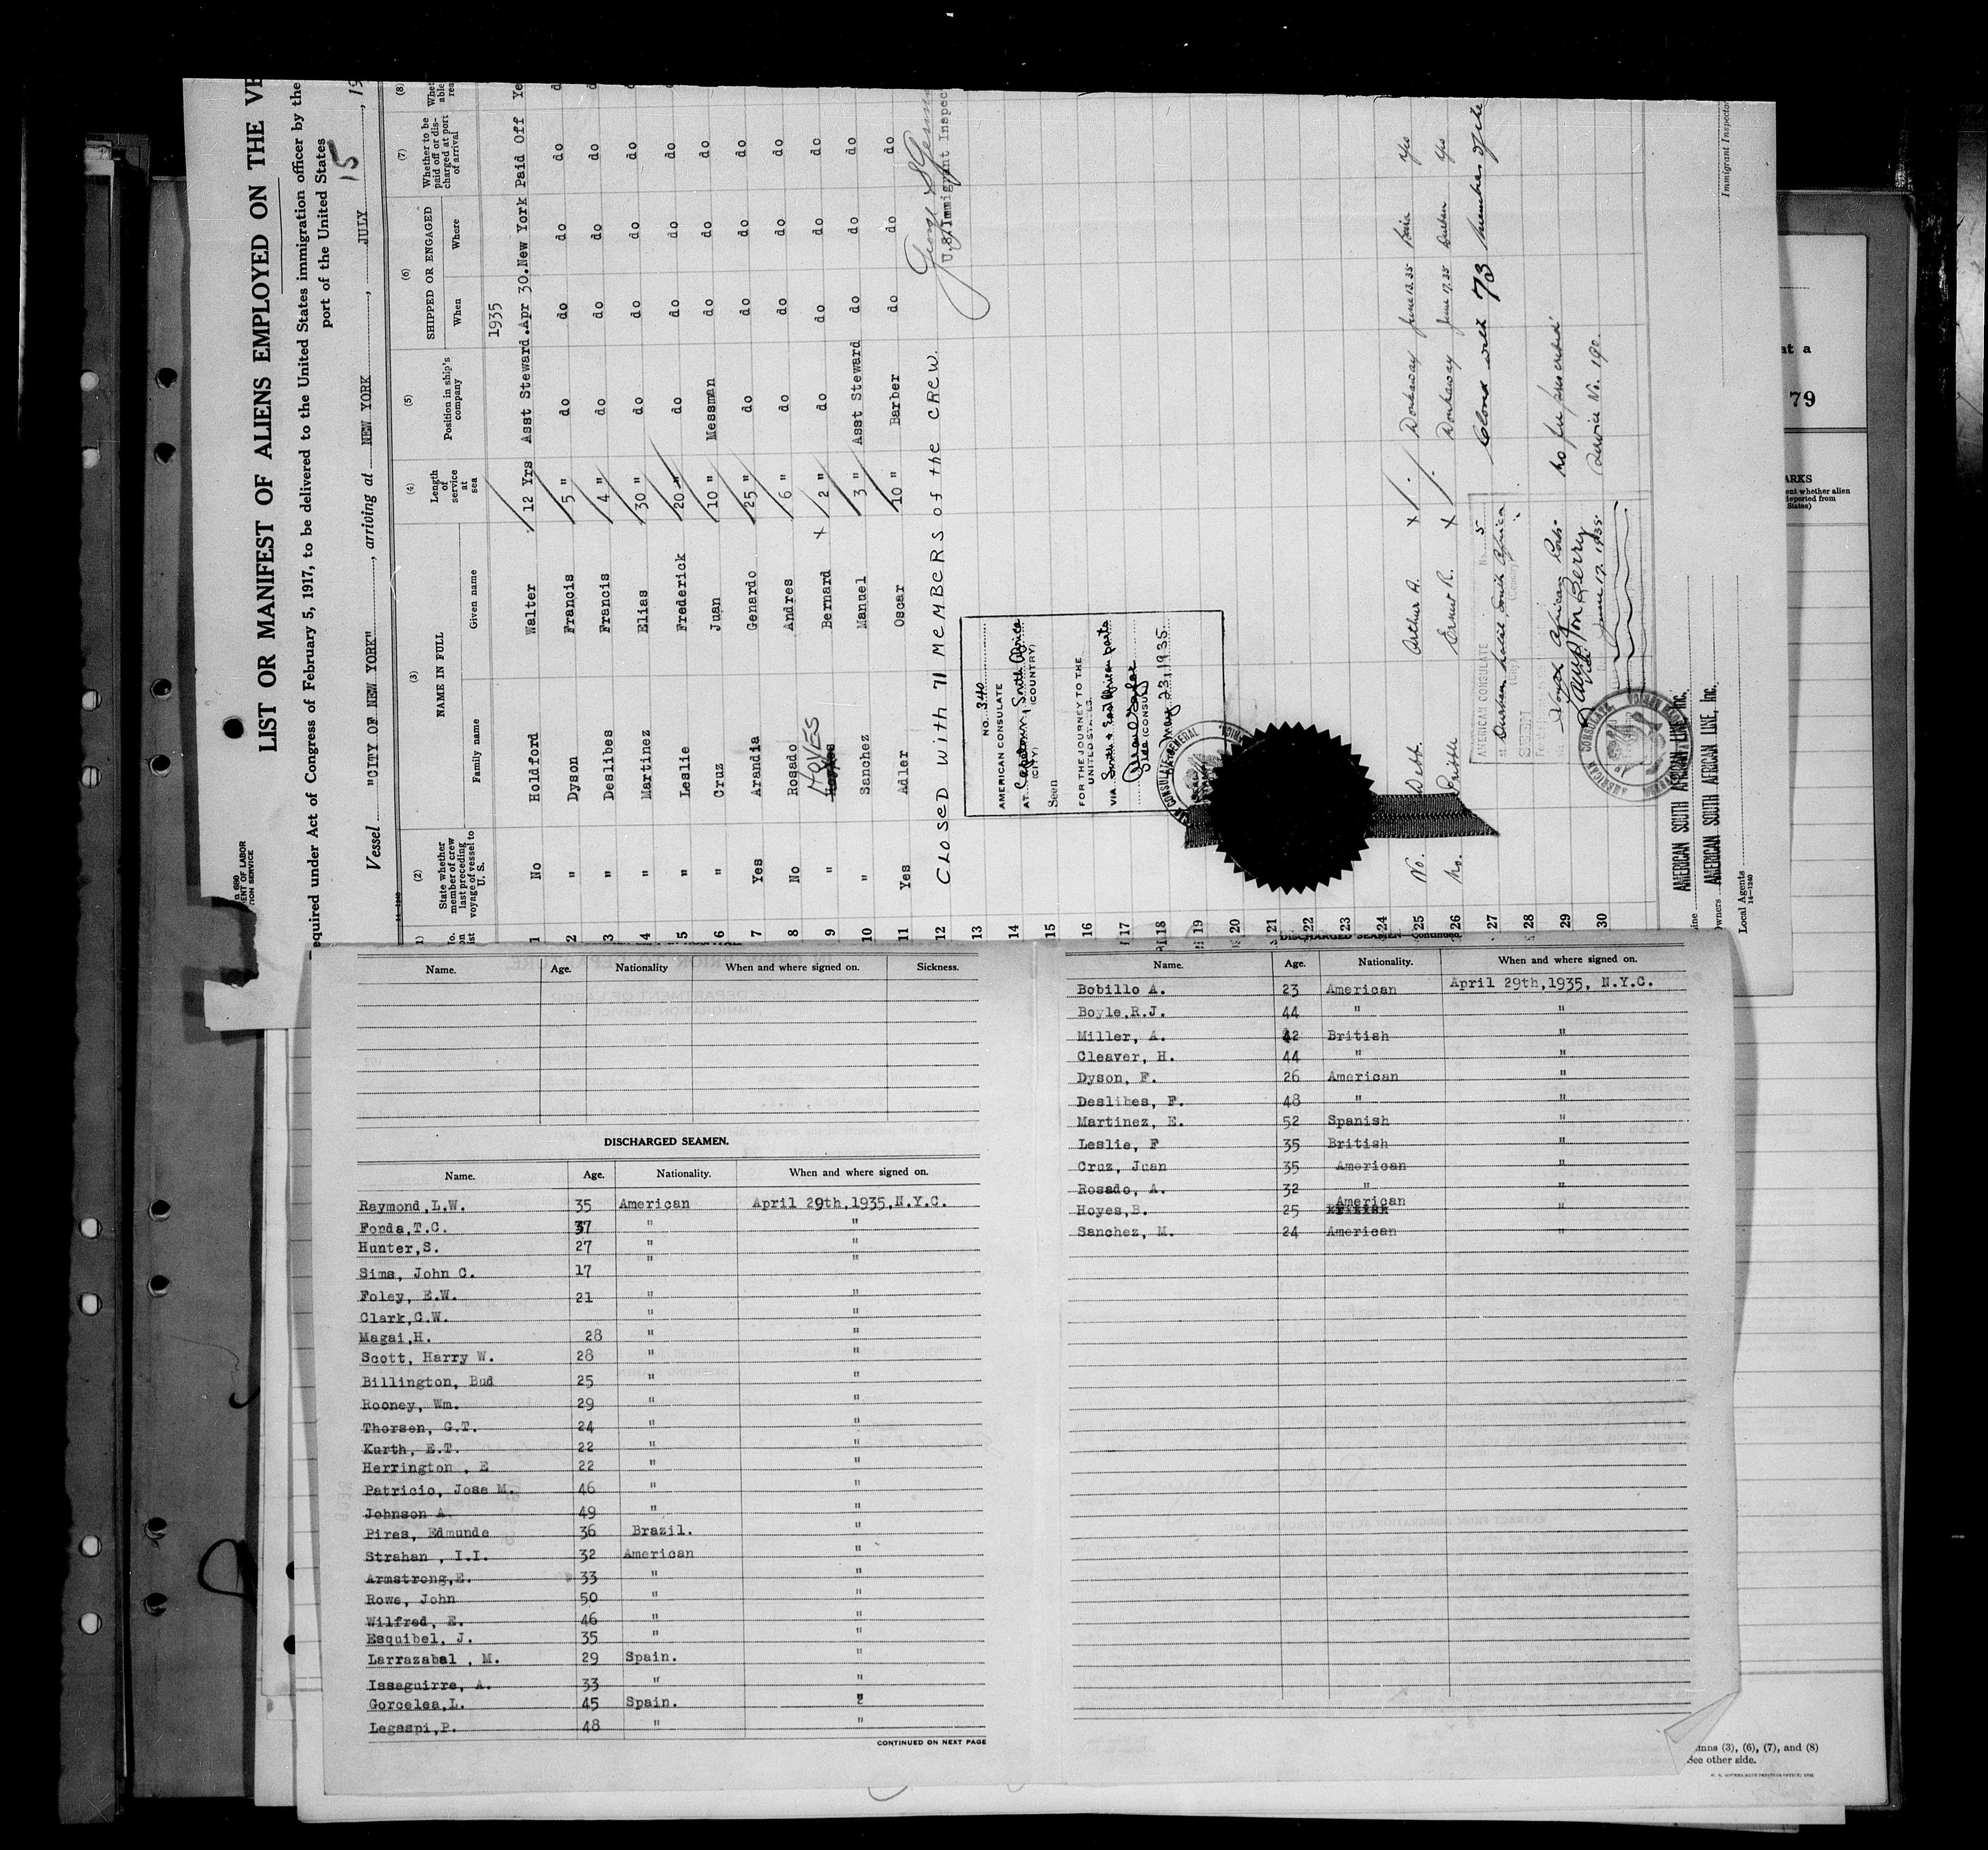 B 680
ENT OF LABOR
TION SERVICE
LIST OR MANIFEST OF ALIENS EMPLOYED ON THE VE
equired under Act of Congress of February 5, 1917, to be delivered to the United States immigration officer by the
port of the United States
Vessel "CITY OF NEW YORK", arriving at NEW YORK, JULY 15, 19
14-1240
(2) (3) (4) (5) (6) (7) (8)
State whether member of crew last preceding voyage of vessel to U. S. NAME IN FULL Length of service at sea Position in ship's company SHIPPED OR ENGAGED Whether to be paid off or discharged at port of arrival
Family name Given name When Where
1935
1 No Holdford Walter 12 Yrs Asst Steward. Apr 30. New York Paid Off Ye
2 " Dyson Francis 5 " do do do do
3 " Deslibes Francis 4 " do do do do
4 " Martinez Elias 30 " do do do do
5 " Leslie Frederick 20 " do do do do
6 " Cruz Juan 10 " Messman do do do
7 Yes Arandia Genardo 25 " do do do do
8 No Rosado Andres 6 " do do do do
HOYES
9 " Bernard x 2 " do do do do
10 " Sanchez Manuel 3 " Asst Steward do do do
11 Yes Adler Oscar 10 " Barber do do do
12 CLOSED WITH 71 MEMBERS of the CREW.
U.S. Immigrant Inspec
13
14
15
16
17
18
19
20
21
22
23
24
NO. 340
AMERICAN CONSULATE
AT Capetown, South Africa
(CITY) (COUNTRY)
Seen
FOR THE JOURNEY TO THE
UNITED STATES.
VIA South & East African ports
Vice (CONSUL)
May 23, 1935
25 No. Webb Arthur A. x Workaway June 13.35 Beira Yes
26 No. Ernest R. x Workaway June 17.35 Durban Yes
27 Closed with 73 members of crew
28
29
30
AMERICAN CONSULATE No. 5
at Durban, Natal, South Africa
(City) (Country)
June 17, 1935.
No fee prescribed
Service No. 190.
AMERICAN CONSULATE
AMERICAN SOUTH AFRICAN LINE, Inc.
AMERICAN SOUTH AFRICAN LINE, Inc.
Local Agents
14-1240
Immigrant Inspector
at a
79
ARKS
ent whether alien
deported from
States)
Name. Age. Nationality When and where signed on. Sickness.
DISCHARGED SEAMEN.
Name. Age. Nationality. When and where signed on.
Raymond,L.W. 35 American April 29th,1935,N.Y.C.
Fonda,T.C. 37 " "
Hunter,S. 27 " "
Sims, John C. 17 " "
Foley, E.W. 21 " "
Clark,C.W. " "
Magai,H. 28 " "
Scott, Harry W. 28 " "
Billington, Bud 25 " "
Rooney, Wm. 29 " "
Thorsen, G.T. 24 " "
Kurth, E.T. 22 " "
Herrington , E 22 " "
Patricio, Jose M. 46 " "
Johnson A. 49 " "
Pires, Edmunde 36 Brazil. "
Strahan , I.I. 32 American "
Armstrong,E. 33 " "
Rowe, John 50 " "
Wilfred, E. 46 " "
Esquibel, J. 35 " "
Larrazabal , M. 29 Spain. "
Issaguirre, A. 33 " "
Gorcelea,L. 45 Spain. "
Legaspi,P. 48 " "
CONTINUED ON NEXT PAGE
DISCHARGED SEAMEN—Continued
Name. Age. Nationality. When and where signed on.
Bobillo A. 23 American April 29th,1935, N.Y.C.
Boyle,R.J. 44 " "
Miller, A. 42 British "
Cleaver, H. 44 " "
Dyson, F. 26 American "
Deslibes, F. 48 " "
Martinez, E. 52 Spanish "
Leslie, F 35 British "
Cruz, Juan 35 American "
Rosado, A. 32 " "
Hoyes,B. 25 American "
Sanchez, M. 24 American "
umns (3), (6), (7), and (8)
See other side.